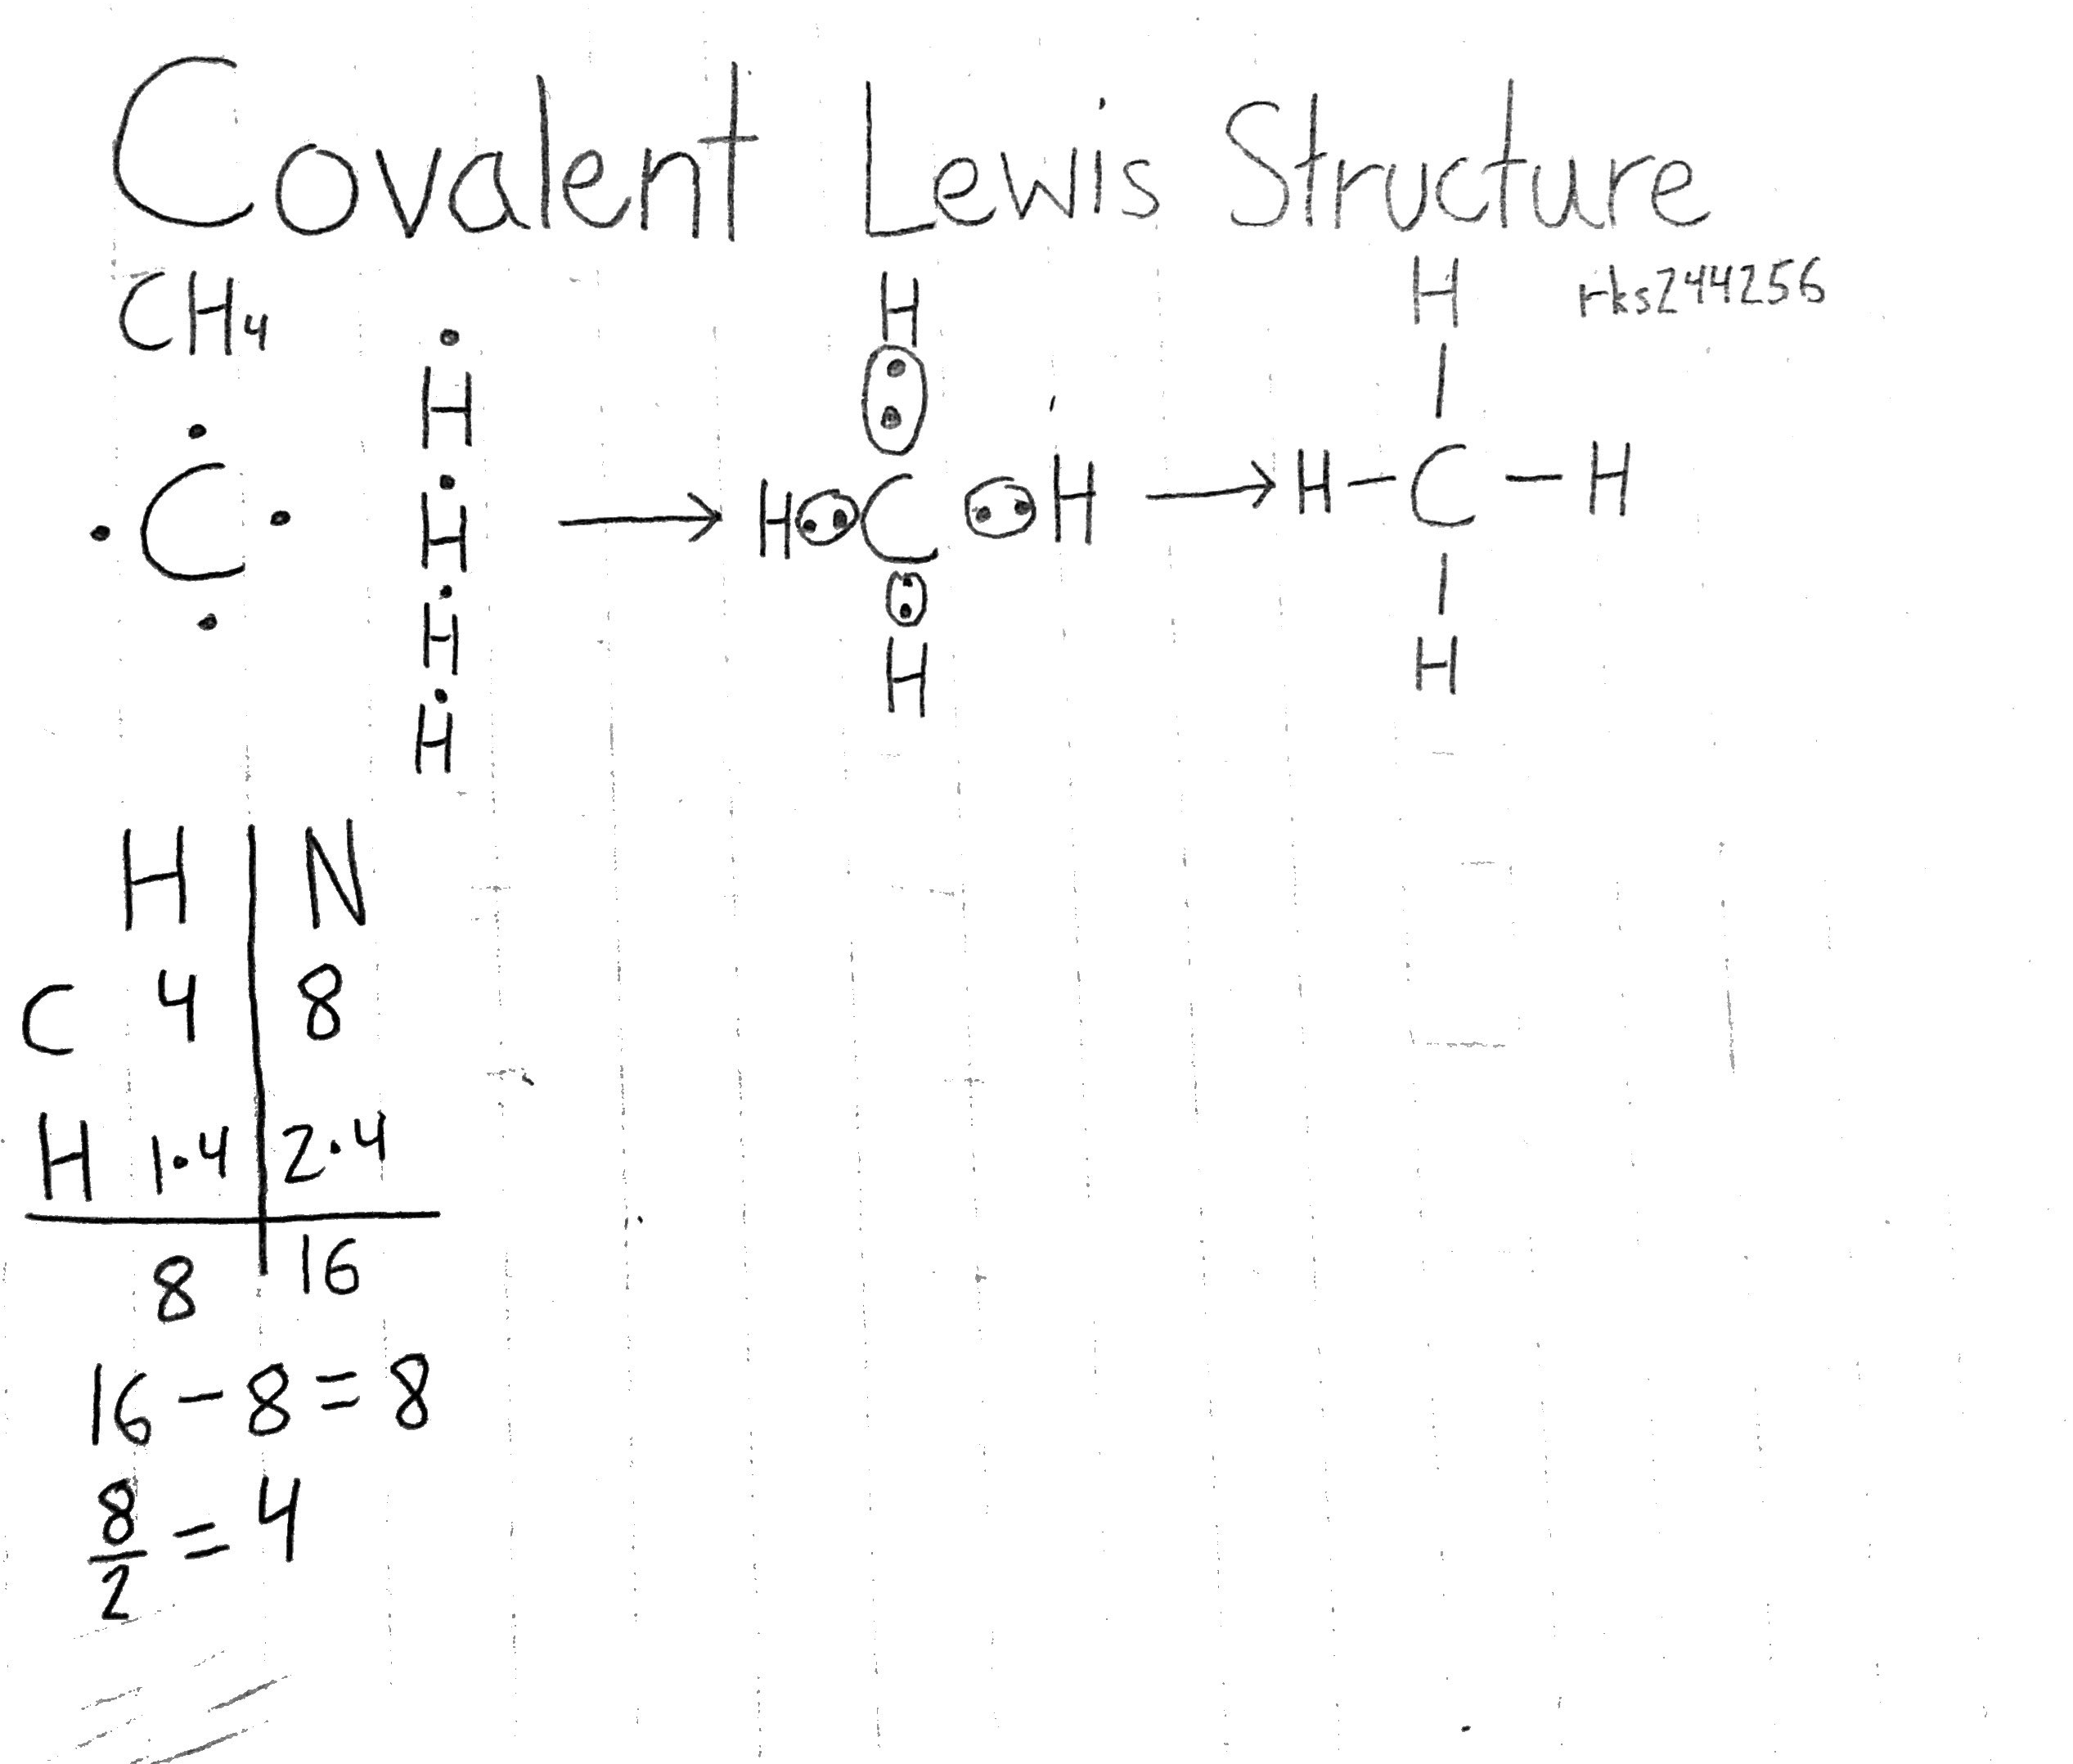 Covalent Lewis Structure
rks244256
CH4
C
H
H
H
H
H
H C H
H
H
H-C-H
H
H N
C 4 8
H 1·4 2·4
8 16
16-8=8
8/2=4